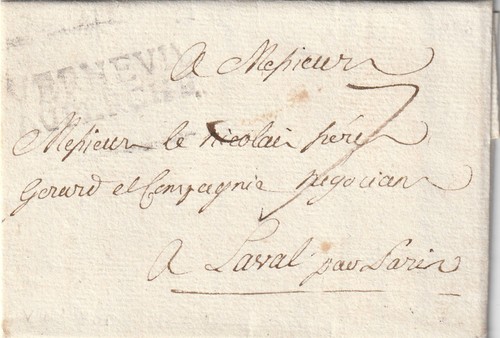 VERNEUIL
A Messieurs
Messieurs le nicolais père
Gerard et Compagnie negocians
A Laval par Paris
7